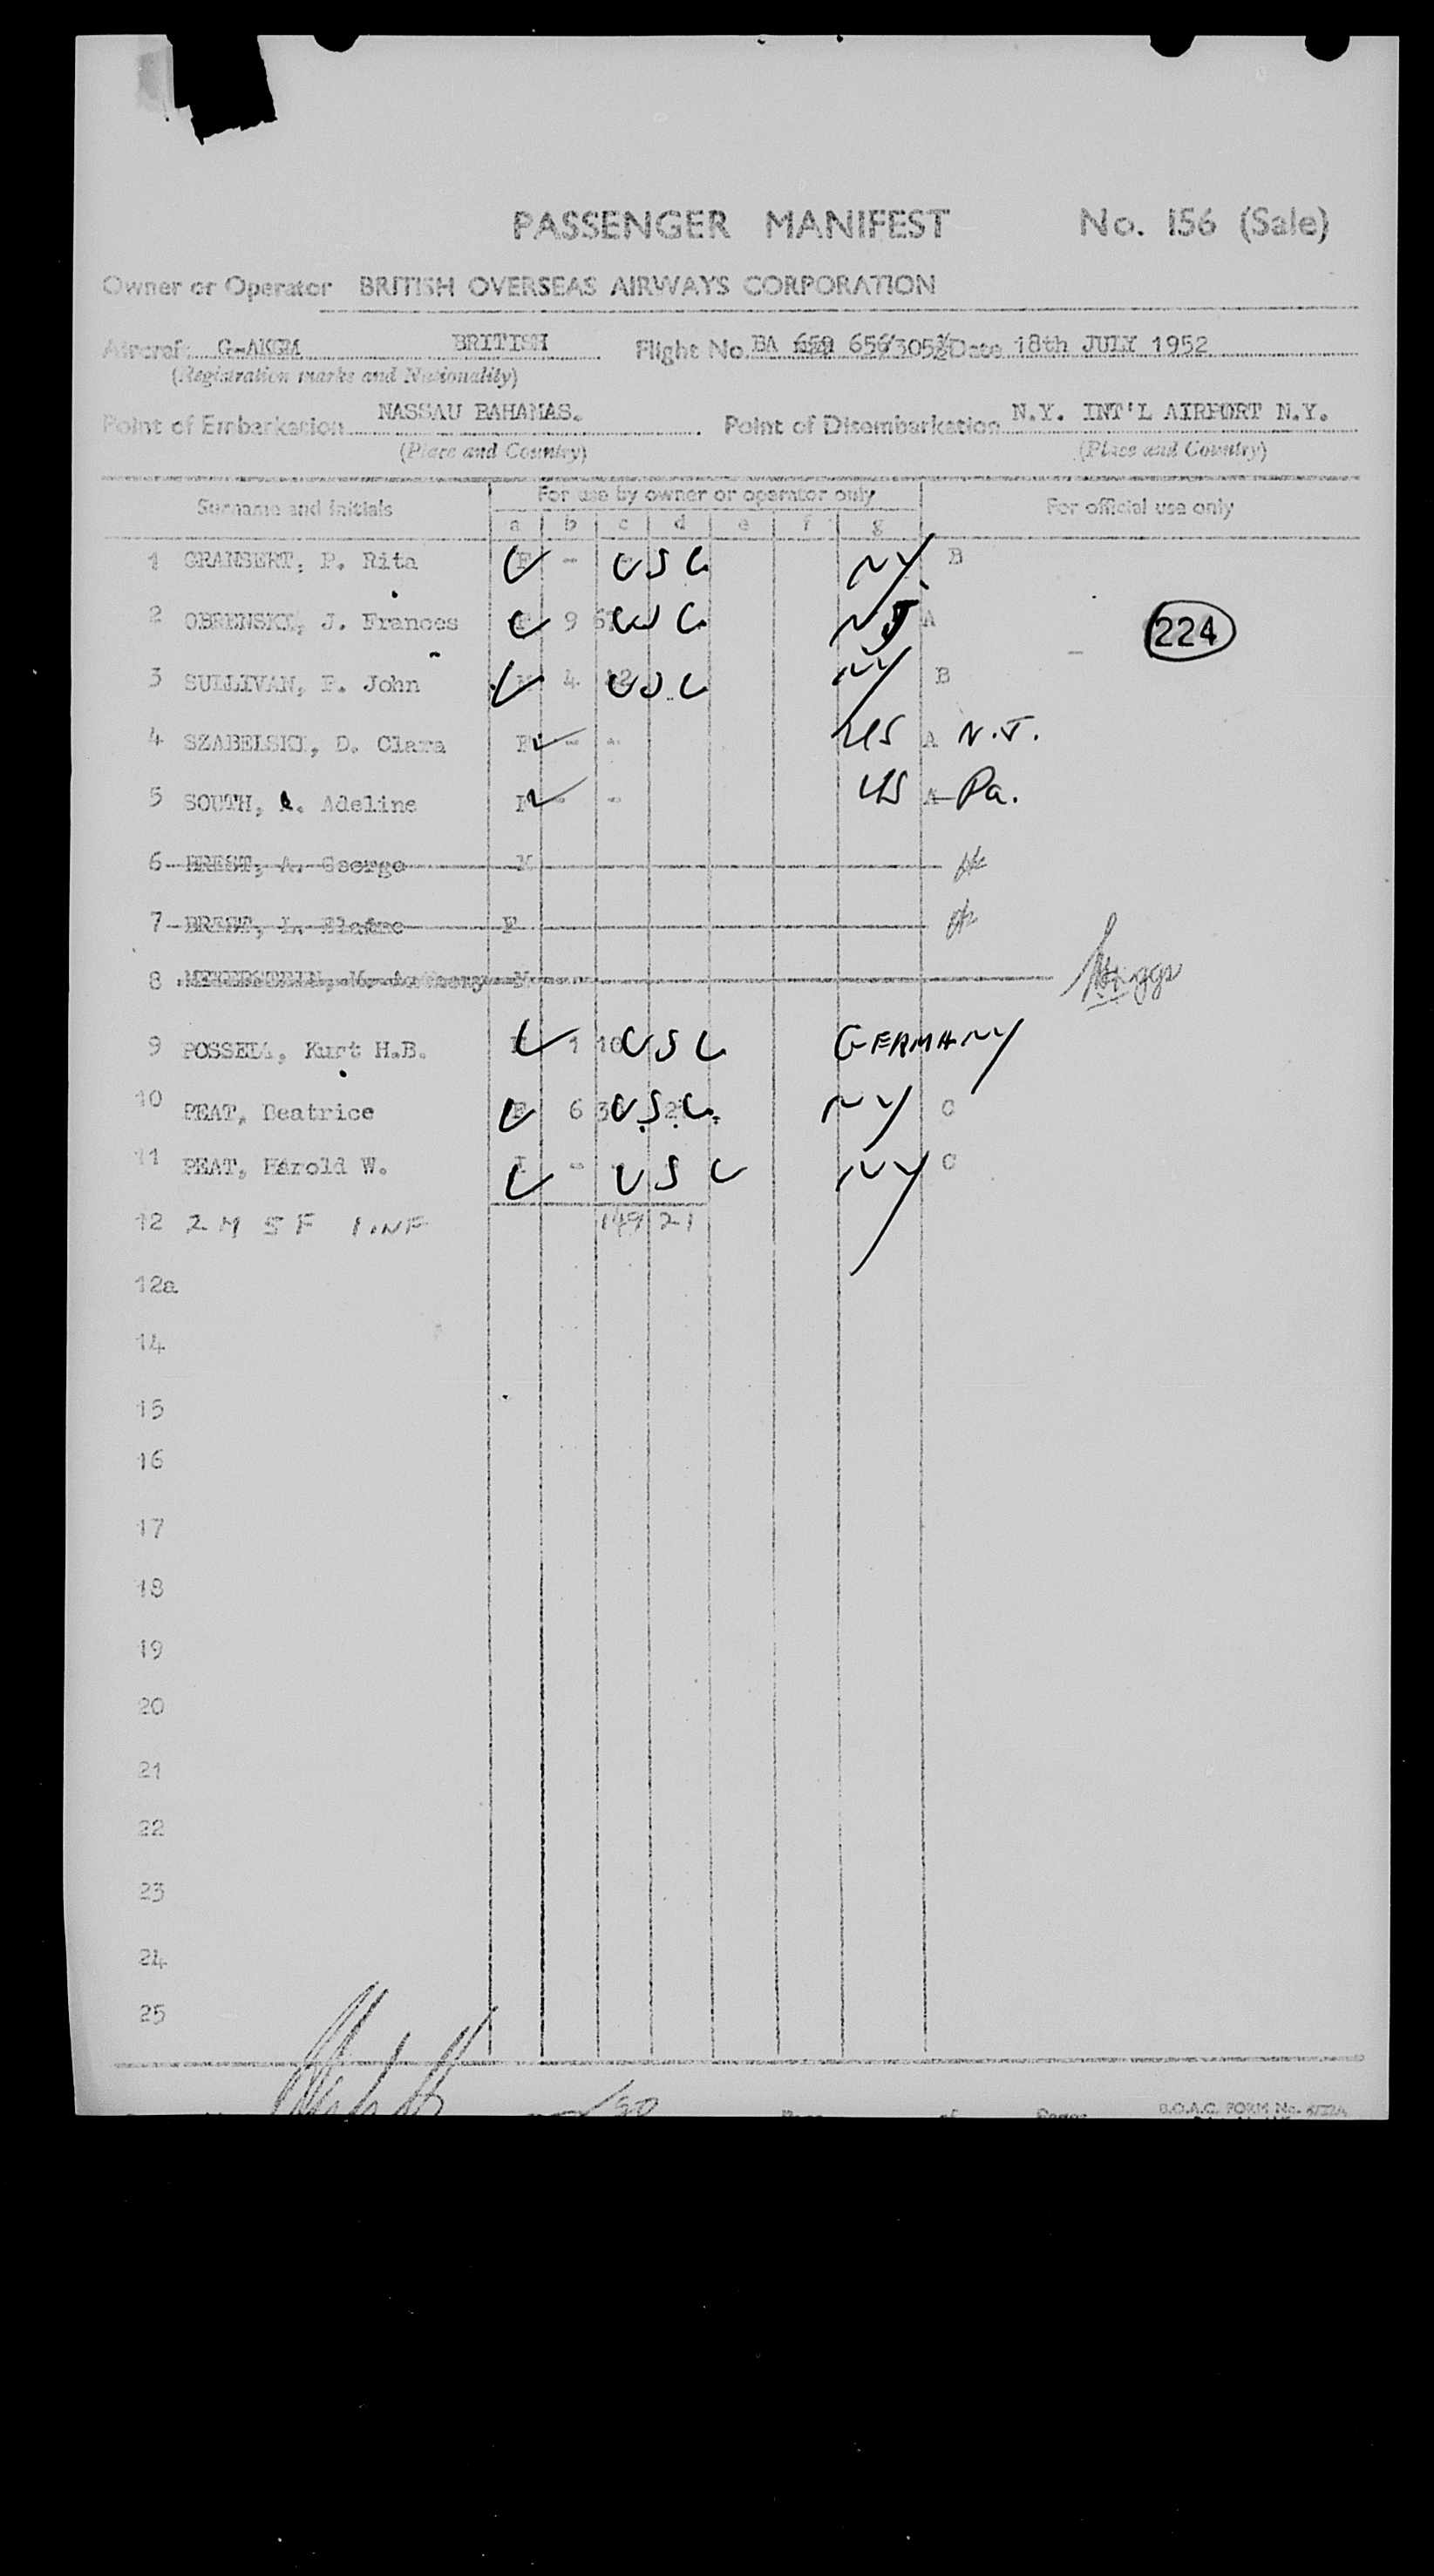 PASSENGER MANIFEST No. 156 (Sale)
Owner or Operator BRITISH OVERSEAS AIRWAYS CORPORATION
Aircraft G-AKGM BRITISH Flight No. BA 659 656/305 Date 18th JULY 1952
(Registration marks and Nationality)
Point of Embarkation NASSAU BAHAMAS. Point of Disembarkation N.Y. INT'L AIRPORT N.Y.
(Place and Country) (Place and Country)
Surname and initials For use by owner or operator only For official use only
a b c d e f g
1 GRANBERT, P. Rita F - USC NY B
2 OBRENSKI, J. Frances F 9 USC NJ A
224
3 SULLIVAN, F. John M 4 USC NY B
4 SZABELSKI, D. Clara F - - US A N.J.
5 SOUTH, Adeline - - US A Pa.
6 BREST, A. George M
7 BREST, L. Elaine F
8 M
9 Kurt H.B. 1 10 USC GERMANY
10 PEAT, Beatrice F 6 USC NY C
11 PEAT, Harold W. - USC NY C
12 2 M 5 F 1 INF 149 21
12a
14
15
16
17
18
19
20
21
22
23
24
25
B.O.A.C. FORM No.